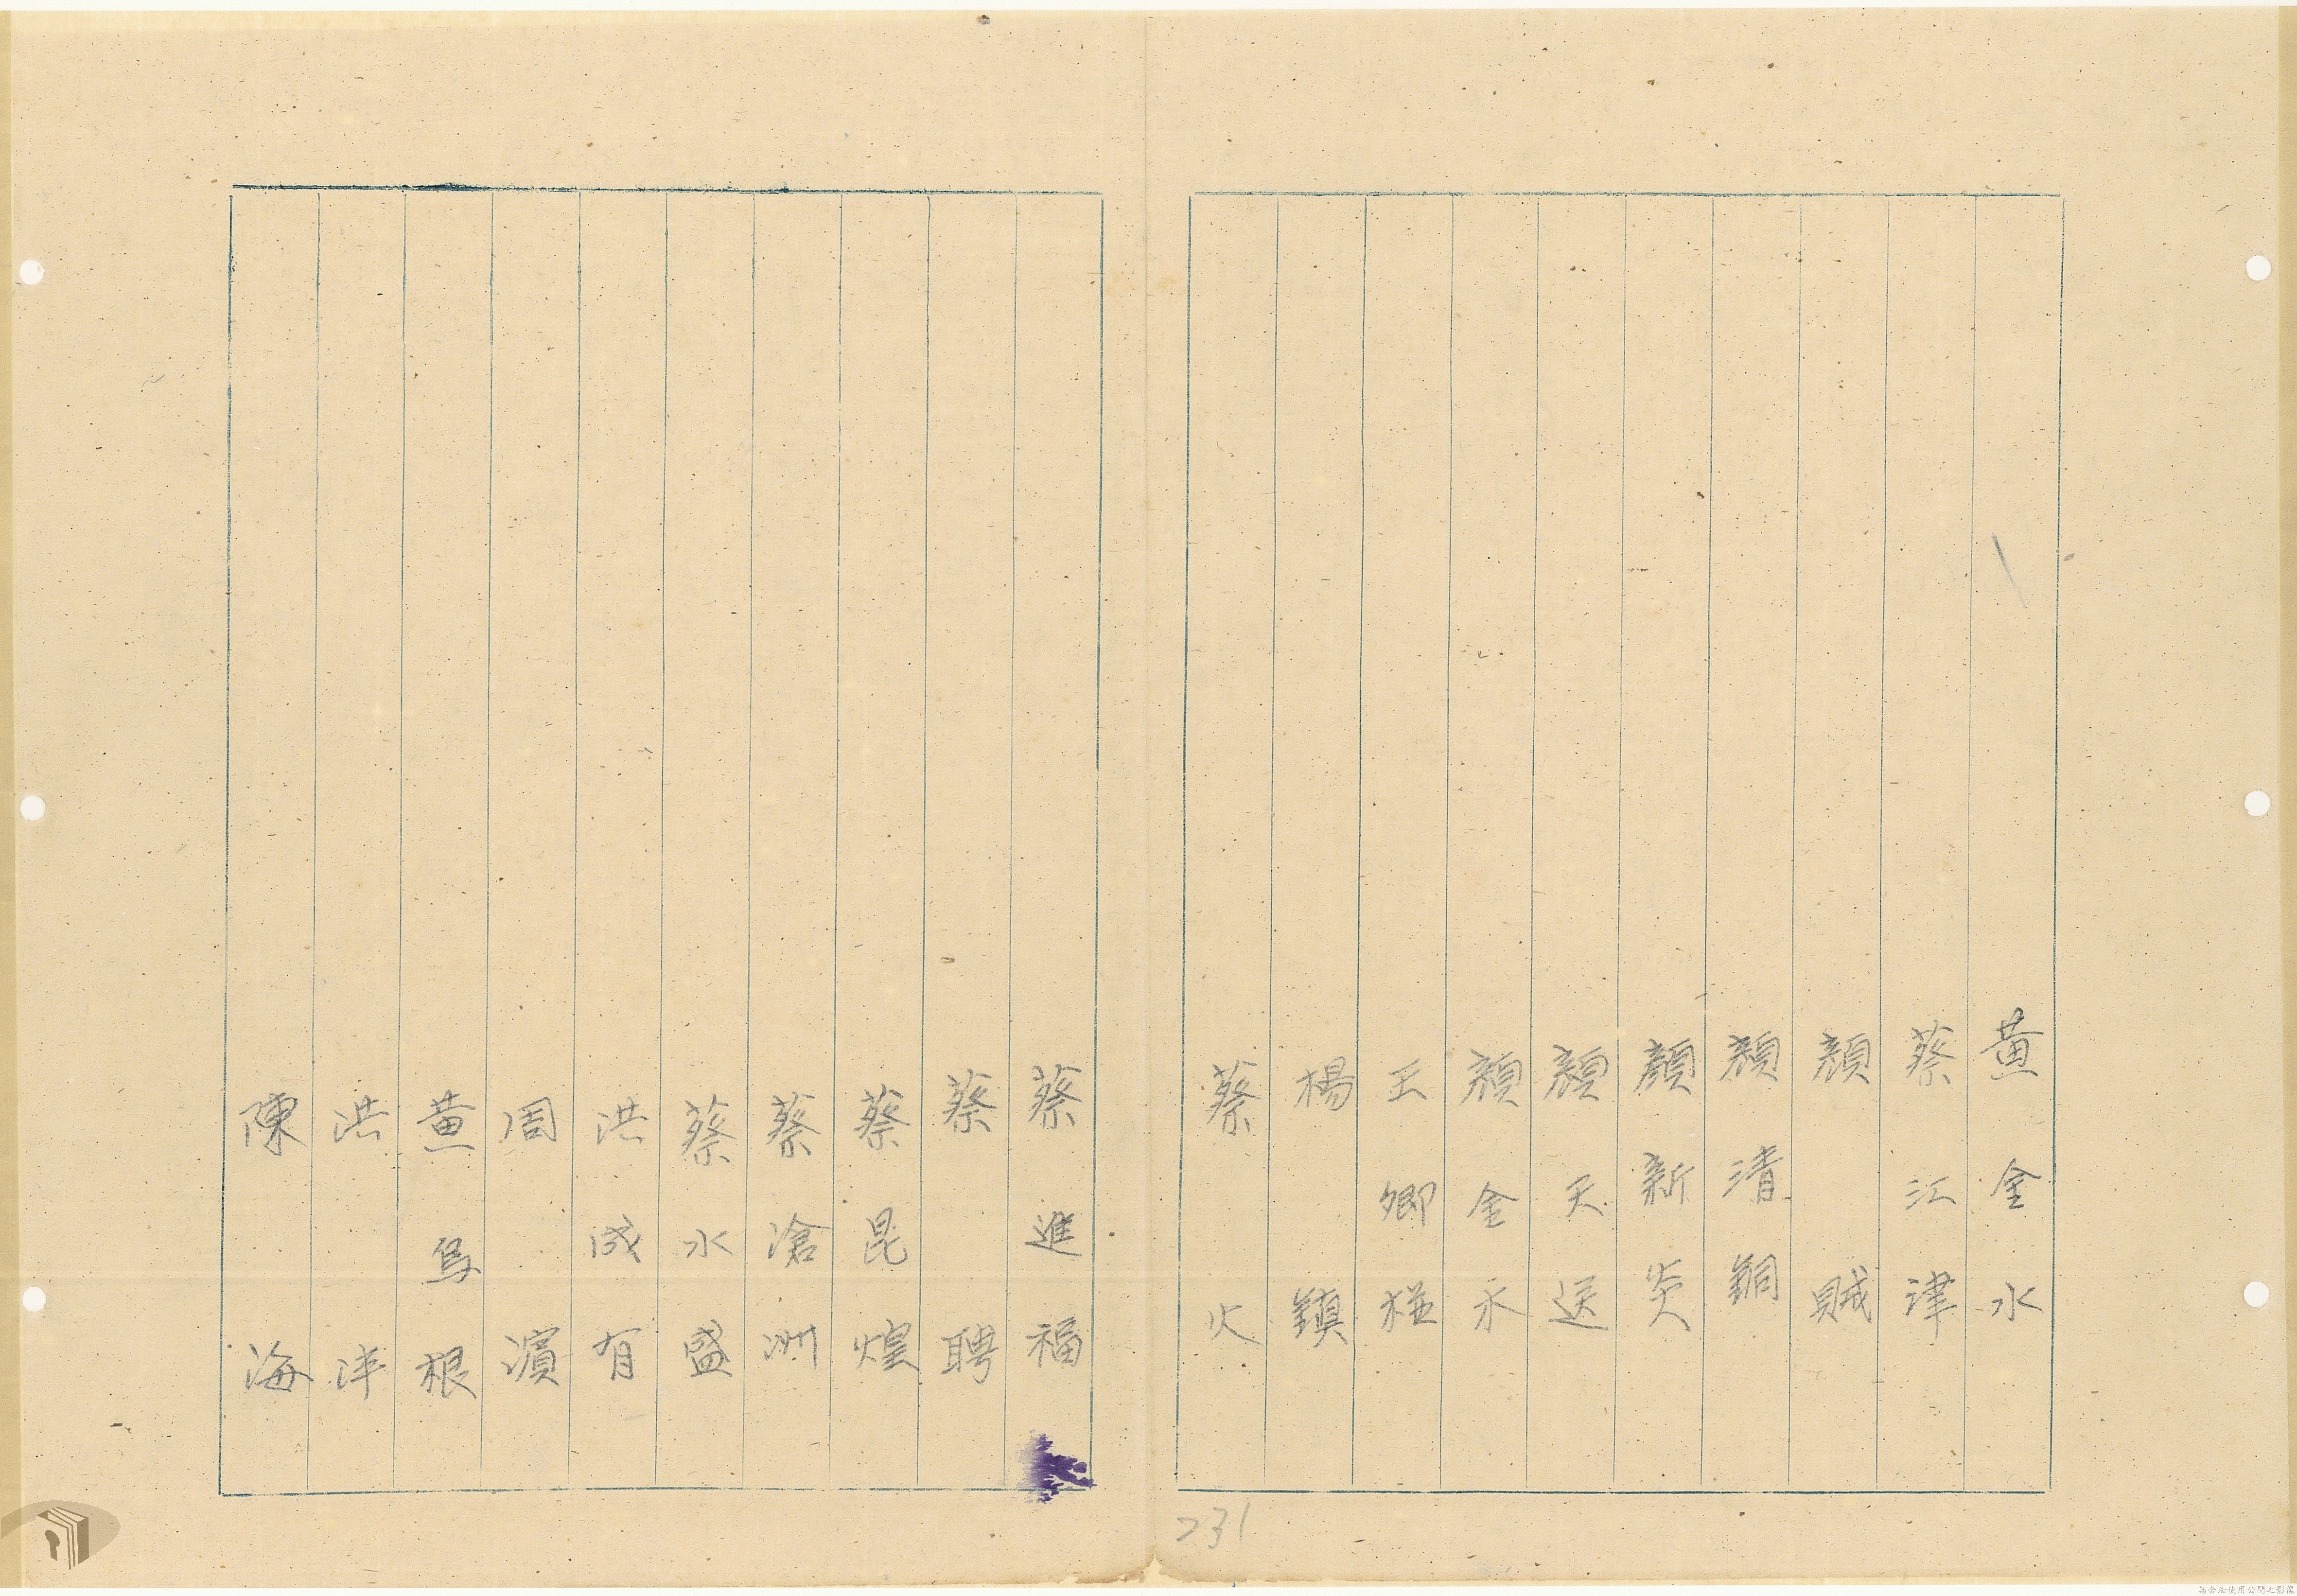 黃金水
蔡江津
顏賊
顏清銅
顏新炎
顏天送
顏金永
王卿椪
楊鎮
蔡火
蔡進福
蔡聘
蔡昆煌
蔡滄洲
蔡水盛
洪成有
周濱
黃烏根
洪洋
陳海
231
請合法使用公開之影像